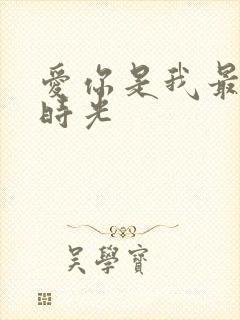 愛你是我最
時光
吴學寶